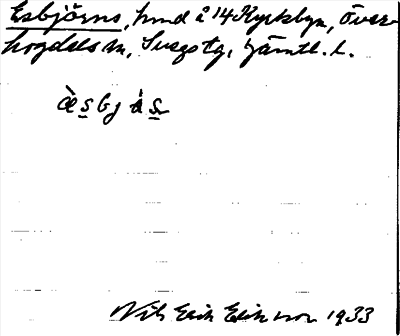 Esbjörns, hmd å 14 Kyrkbyn, Över-
hogdals sn, Svegs tg, Jämtl. l.
æ̀sbjás
Nils Erik Eriksson 1933